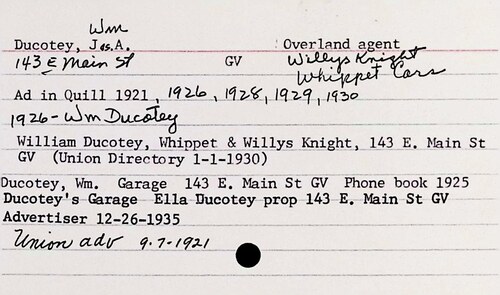 Wm
Ducotey, Jas.A. Overland agent
143 E Main St GV Willys Knight
Whippet Cars
Ad in Quill 1921, 1926, 1928, 1929, 1930
1926 - Wm Ducotey
William Ducotey, Whippet & Willys Knight, 143 E. Main St
GV (Union Directory 1-1-1930)
Ducotey, Wm. Garage 143 E. Main St GV Phone book 1925
Ducotey's Garage Ella Ducotey prop 143 E. Main St GV
Advertiser 12-26-1935
Union adv 9-7-1921